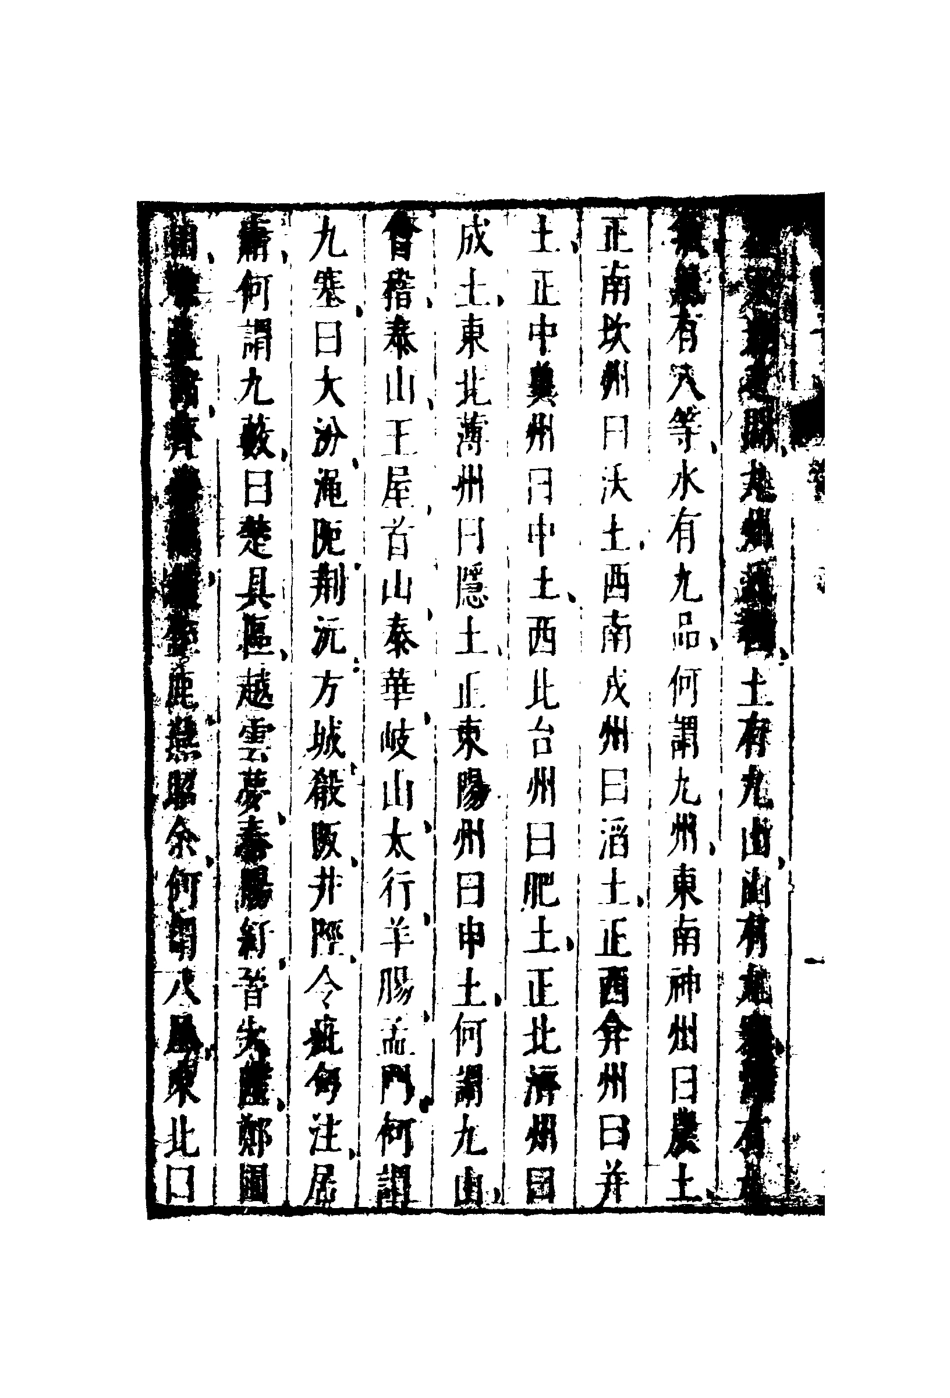 天地之間九州八極土有九山山有九塞澤有九
藪風有八等水有九品何謂九州東南神州曰農土
正南坎州曰沃土西南戎州曰滔土正西弇州曰并
土正中冀州曰中土西北台州曰肥土正北濟州曰
成土東北薄州曰隱土正東陽州曰申土何謂九山
會稽泰山王屋首山泰華岐山太行羊腸孟門何謂
九塞曰大汾澠阨荆沅方城殽阪井陘令疵句注居
庸何謂九藪曰楚具區越雲夢秦陽紆晉大陸鄭圃
田宋孟諸齊海隅趙鉅鹿燕昭余何謂八風東北曰